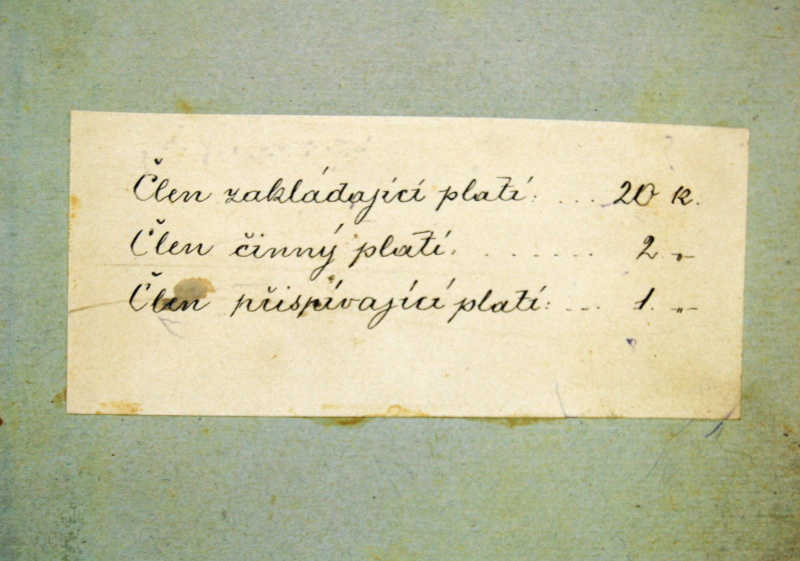 Člen zakládající platí: ... 20 K.
Člen činný platí. ....... 2 „-
Člen přispívající platí: ... 1. „-